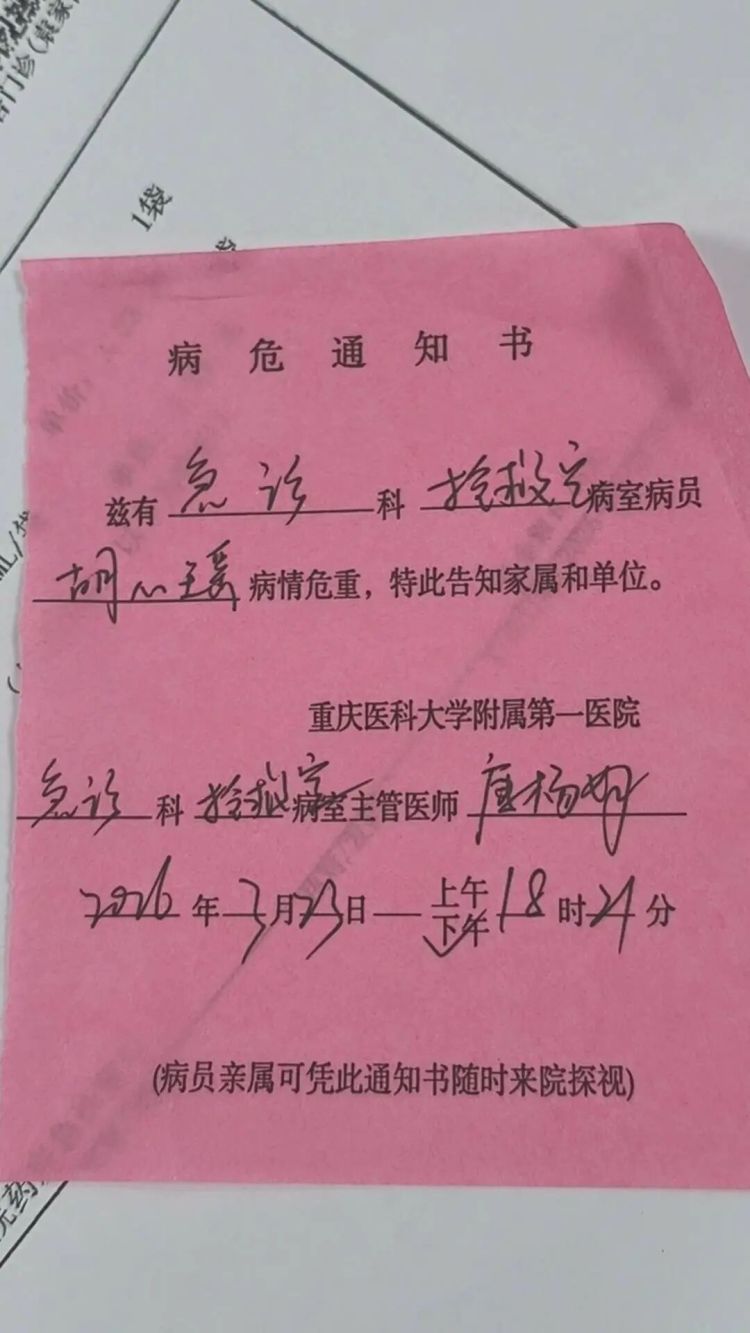 1袋
病危通知书
兹有 急诊 科 抢救室 病室病员
胡心瑶 病情危重，特此告知家属和单位。
重庆医科大学附属第一医院
急诊 科 抢救室 病室主管医师 唐杨
2026 年 3 月 23 日 — 上午 下午 18 时 21 分
(病员亲属可凭此通知书随时来院探视)